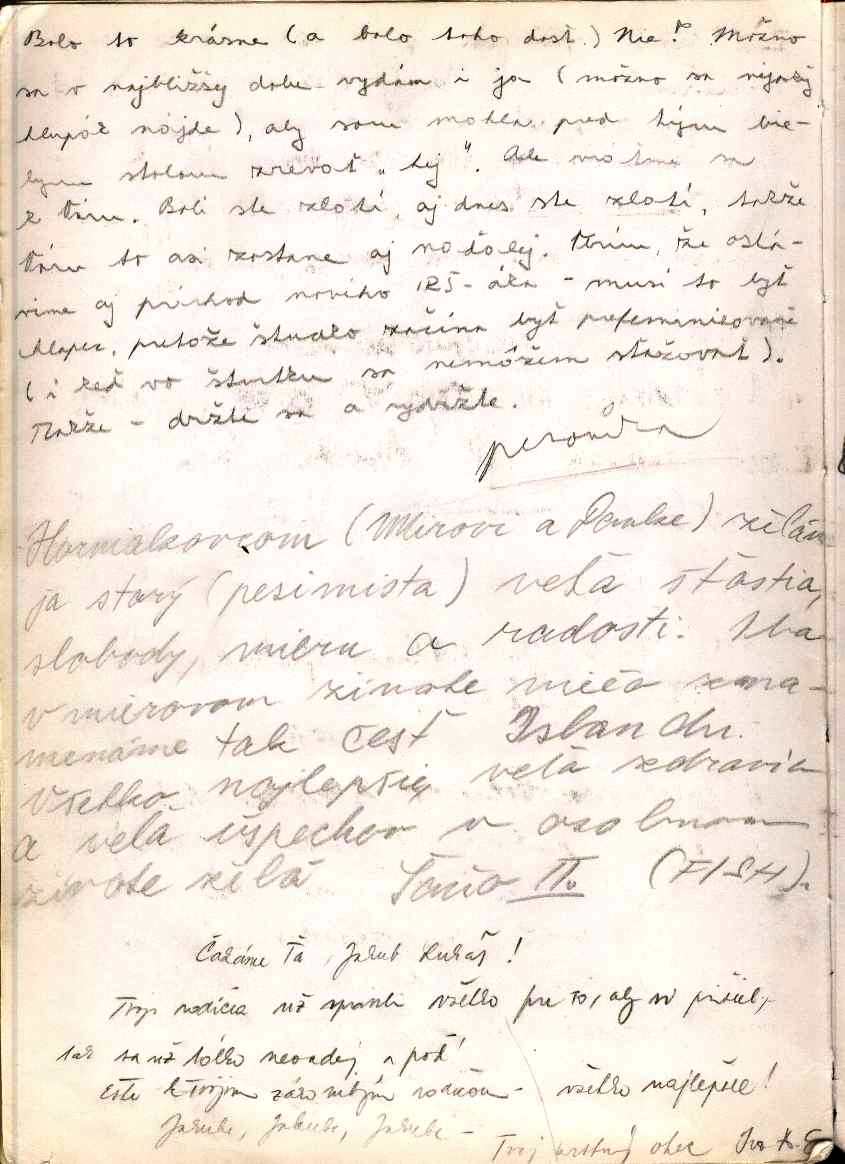 Bolo to krásne (a bolo toho dosť.) Nie? Možno
sa v najbližšej dobe vydám i ja (možno sa nejaký
chlapík nájde), aby som mohla pred tým bie-
lym stolom zrevať „hej“. Ale vráťme sa
k Vám. Boli ste zlatí, aj dnes ste zlatí, takže
Vám to asi zostane aj naďalej. Verím, že oslá-
vime aj príchod nového 125-ára - musí to byť
chlapec, pretože štúdio začína byť prefeminizované
(i keď vo štvrtku sa nemôžem sťažovať).
Takže - držte sa a vydržte.
Horniakovcom (Mirovi a Danke) želám
ja starý (pesimista) veľa šťastia,
slobody, mieru a radosti. Iba
v mierovom živote niečo zna-
menáme tak česť Islandu.
Všetko najlepšie, veľa zdravia
a veľa úspechov v osobnom
živote želá Šaňo II. (FISH).
Čakáme Ťa, Jakub Lukáš!
Tvoji rodičia už spravili všetko pre to, aby si prišiel,
tak sa už toľko neovaľuj a poď!
Ešte k Tvojim rodičom - všetko najlepšie!
Jakube, Jakube, Jakube -
Tvoj krstný otec